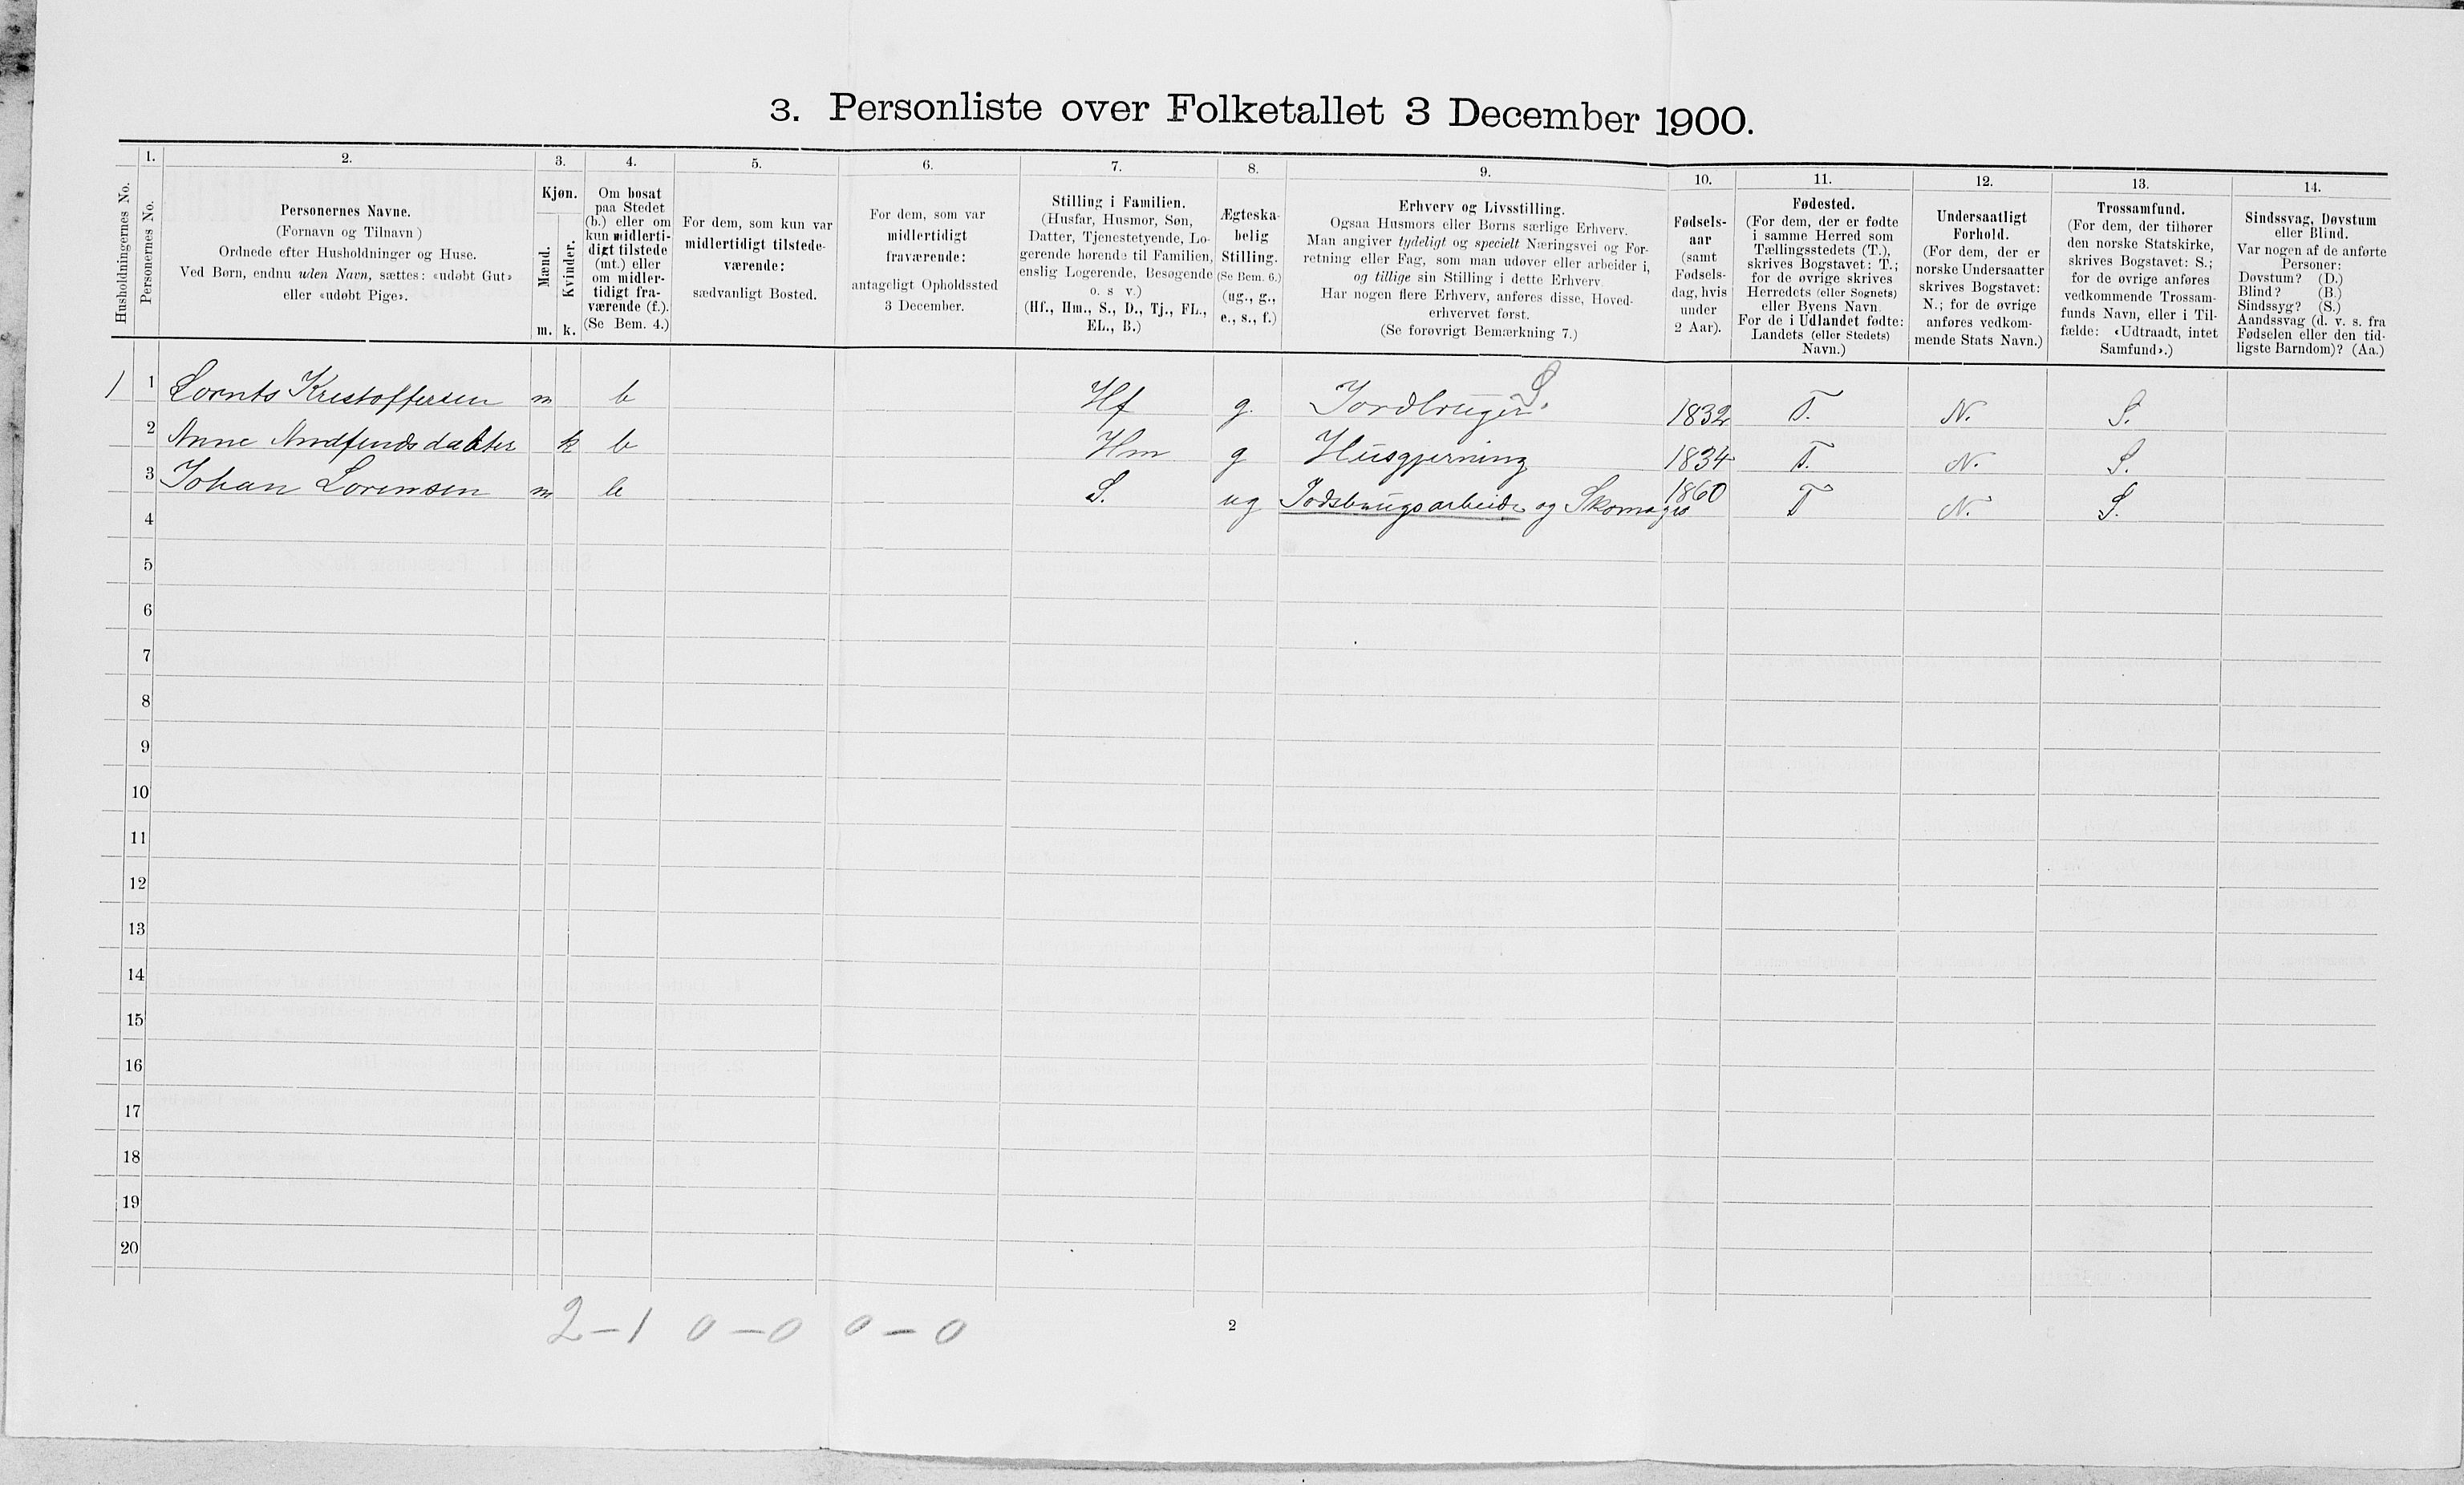 3. Personliste over Folketallet 3 December 1900.
Husholdningernes No.
1.
Personernes No.
2.
Personernes Navne.
(Fornavn og Tilnavn)
Ordnede efter Husholdninger og Huse.
Ved Børn, endnu uden Navn, sættes: «udøbt Gut»
eller «udøbt Pige».
3.
Kjøn.
Mænd.
Kvinder.
m. k.
4.
Om bosat
paa Stedet
(b.) eller om
kun midlerti-
digt tilstede
(mt.) eller
om midler-
tidigt fra-
værende (f.).
(Se Bem. 4.)
5.
For dem, som kun var
midlertidigt tilstede-
værende:
sædvanligt Bosted.
6.
For dem, som var
midlertidigt
fraværende:
antageligt Opholdssted
3 December.
7.
Stilling i Familien.
(Husfar, Husmor, Søn,
Datter, Tjenestetyende, Lo-
gerende hørende til Familien,
enslig Logerende, Besøgende
o. s v.)
(Hf., Hm., S., D., Tj., FL.,
EL., B.)
8.
Ægteska-
belig
Stilling.
(Se Bem. 6.)
(ug., g.,
e., s., f.)
9.
Erhverv og Livsstilling.
Ogsaa Husmors eller Børns særlige Erhverv.
Man angiver tydeligt og specielt Næringsvei og For-
retning eller Fag, som man udøver eller arbeider i,
og tillige sin Stilling i dette Erhverv.
Har nogen flere Erhverv, anføres disse, Hoved-
erhvervet først.
(Se forøvrigt Bemærkning 7.)
10.
Fødsels-
aar
(samt
Fødsels-
dag, hvis
under
2 Aar).
11.
Fødested.
(For dem, der er fødte
i samme Herred som
Tællingsstedets (T.),
skrives Bogstavet: T.;
for de øvrige skrives
Herredets (eller Sognets)
eller Byens Navn.
For de i Udlandet fødte:
Landets (eller Stedets)
Navn.)
12.
Undersaatligt
Forhold.
(For dem, der er
norske Undersaatter
skrives Bogstavet:
N.; for de øvrige
anføres vedkom-
mende Stats Navn.)
13.
Trossamfund.
(For dem, der tilhører
den norske Statskirke,
skrives Bogstavet: S.;
for de øvrige anføres
vedkommende Trossam-
funds Navn, eller i Til-
fælde: «Udtraadt, intet
Samfund».)
14.
Sindssvag, Døvstum
eller Blind.
Var nogen af de anførte
Personer:
Døvstum? (D.)
Blind? (B.)
Sindssyg? (S.)
Aandssvag (d. v. s. fra
Fødselen eller den tid-
ligste Barndom)? (Aa.)
1 1 Lornts Kristoffersen m b Hf g. Jordbruger S. 1832 T. N. S.
2 Anne Arndfindsdatter k b Hm g Husgjerning 1834 T. N. S.
3 Johan Lorensen m b S. ug Jodsbrugsarbeide og Skomager 1860 T N. S.
4
5
6
7
8
9
10
11
12
13
14
15
16
17
18
19
20
2-1 0-0 0-0
2